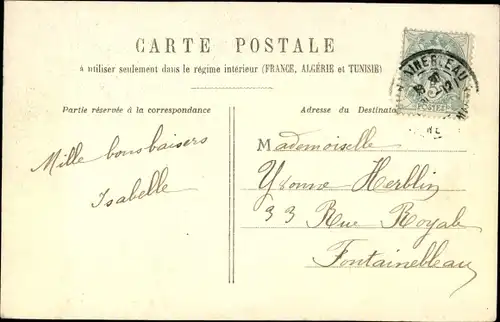 CARTE POSTALE
à utiliser seulement dans le régime intérieur (FRANCE, ALGÉRIE et TUNISIE)
Partie réservée à la correspondance
Mille bons baisers
Isabelle
Adresse du Destinata
Mademoiselle
Yvonne Herblin
33 Rue Royale
Fontainebleau
5
POSTES